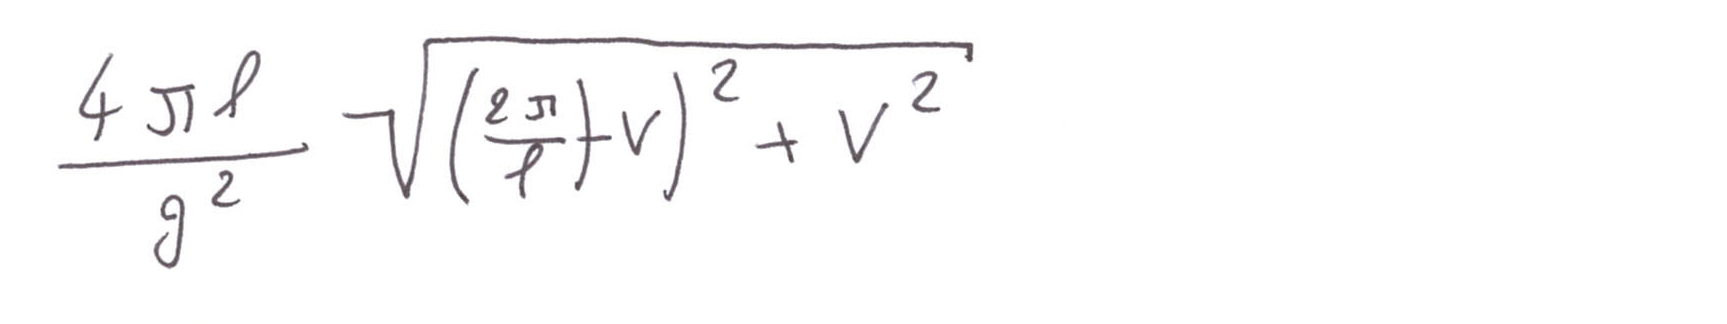 \frac{4 \pi l}{g^2} \sqrt{\left(\frac{2\pi}{l}) - v\right)^2 + v^2}